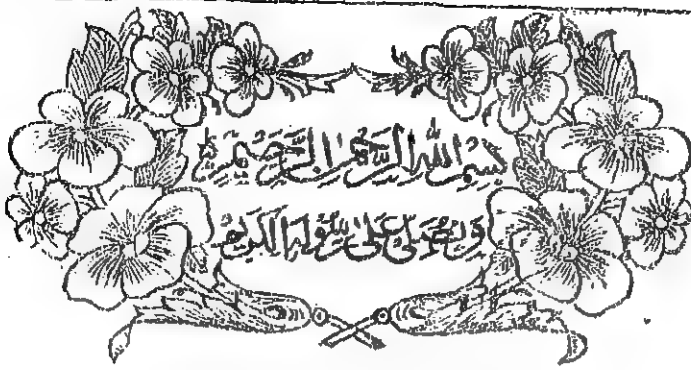 بسم الله الرحمن الرحيم
ونصلى على رسوله الكريم